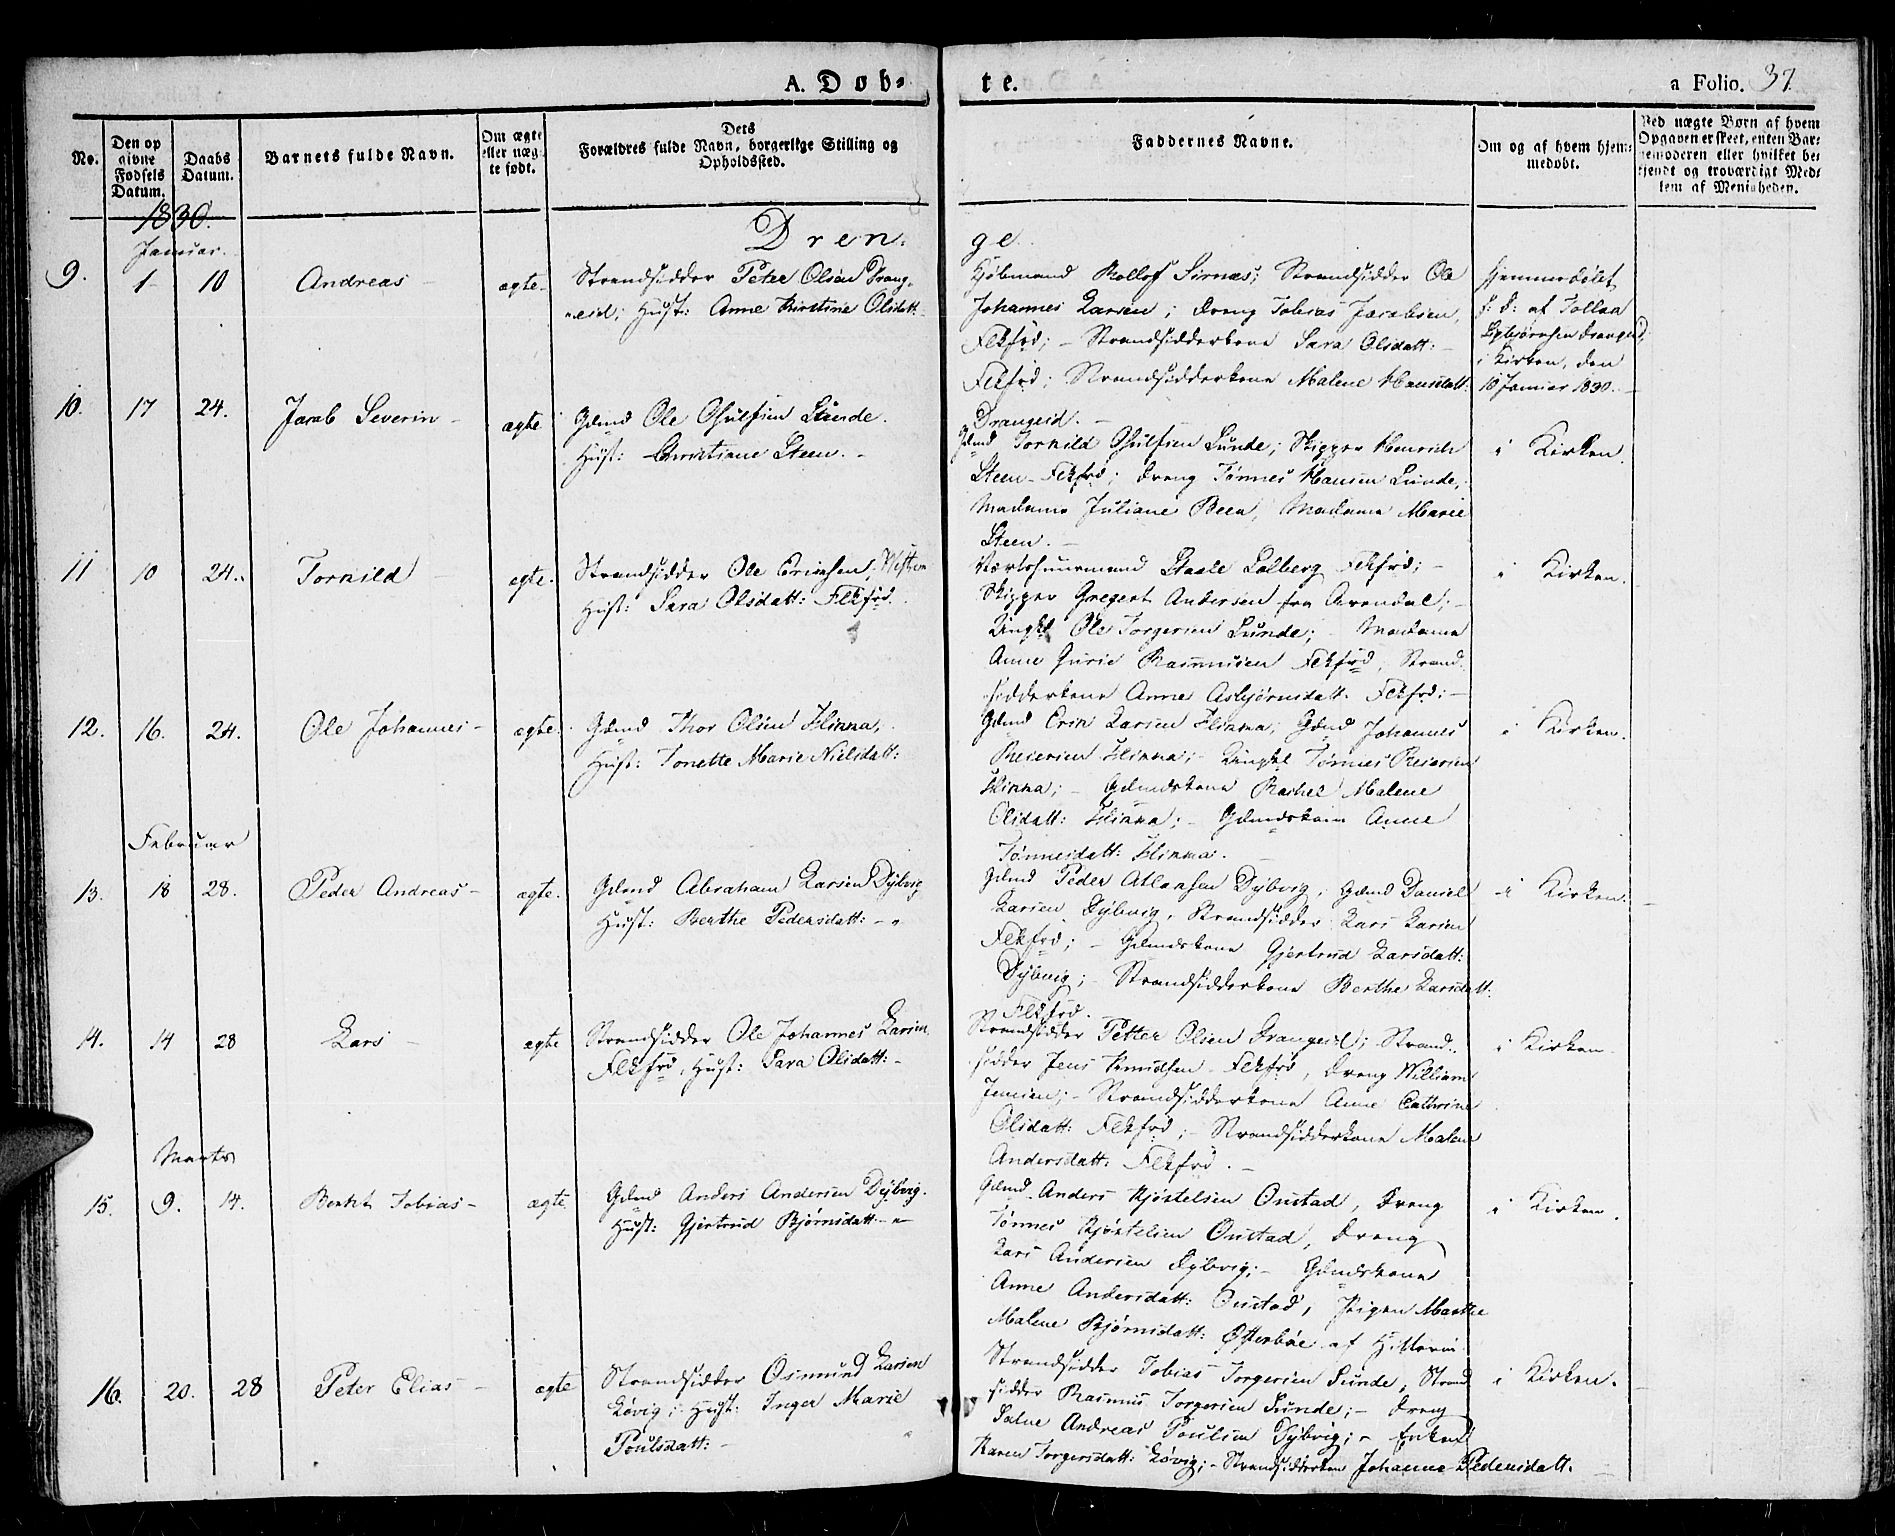 A. Døb-
te.
a Folio. 37.
No.
Den op
givne
Fødsels
Datum.
Daabs
Datum.
Barnets fulde Navn.
Om ægte
eller uæg-
te født.
Dets
Forældres fulde Navn, borgerlige Stilling og
Opholdssted.
Faddernes Navne.
Om og af hvem hjem-
medøbt.
Ved uægte Børn af hvem
Opgaven er skeet, enten Bar-
nemoderen eller hvilket be-
kjendt og troværdigt Med-
lem af Menigheden.
1830.
Januar.
Dren-
ge.
9. 1 10 Andreas ægte. Strandsidder Peter Olsen Drang-
eid; Hust: Anne Kirstine Olsdatt:
Kjøbmand Rollof Sirnæs; Strandsidder Ole
Johannes Larsen; Dreng Tobias Jacobsen,
Flekfrd; - Strandsidderkone Sara Olsdatt:
Flekfrd; Strandsidderkone Malene Hansdatt:
Drangeid. -
Hjemmedøbt
d: af Tollag
Drangeid
i Kirken, den
10 Januar 1830.
10. 17 24. Jacob Severin - ægte Gdmd Ole Lunde.
Hust: Christiane Steen. -
Gdmd Tornild Lunde; Skipper Henrich
Steen - Flekfrd; Dreng Tønnes Hansen Lunde,
Madame Juliane Beer, Madame Marie
Steen. -
i Kirken.
11 10 24. Tornild ægte. Strandsidder Ole
Hust: Sara Olsdatt: Flekfrd.
Staale Solberg Flekfrd; -
Skipper Gregert Andersen fra Arendal; -
Ungkl Ole Torgersen Lunde; - Madame
Anne Gurie Rasmusen Flekfrd, Strand-
sidderkone Anne Asbjørnsdatt. Flekfrd: -
i Kirken.
12. 16. 24. Ole Johannes - ægte. Gdmd Thor Olsen Flikka,
Hust: Tonette Marie Nielsdatt:
Gdmd Erik Larsen Flikka, Gdmd Johannes
Reiersen Flikka; - Ungkl Tønnes Reiersen
Flikka; - Gdmdskone Rachel Malene
Olsdatt: Flikka; - Gdmdskone Anne
Tønnesdatt: Flikka.
i Kirken.
Februar
13. 18 28. Peder Andreas - ægte. Gdmd Abraham Larsen Dybvig
Hust: Berthe Pedersdatt: - "
Gdmd Peder Atlaksen Dybvig; Gdmd Daniel
Larsen Dybvig, Strandsidder Lars Larsen
Flekfrd; - Gdmdskone Gjertrud Larsdatt:
Dybvig; - Strandsidderkone Berthe Larsdatt:
Flekfrd.
i Kirken.
14. 14 28 Lars - ægte Strandsidder Ole Johannes Larsen
Flekfrd, Hust: Sara Olsdatt: -
Strandsidder Petter Olsen Drangeid; Strand-
sidder Jens Knudsen - Flekfrd, Dreng William
Jensen; - Strandsidderkone Anne Cathrine
Olsdatt: Flekfrd; - Strandsidderkone Malene
Andersdatt: Flekfrd. -
i Kirken.
Marts
15. 9. 14. Tobias - ægte Gdmd Anders Andersen Dybvig.
Hust: Gjertrud Bjørnsdatt: - "
Gdmd Anders Kjøstelsen Oustad, Dreng
Tønnes Kjøstelsen Oustad, Dreng
Lars Andersen Dybvig; - Gdmdskone
Anne Andersdatt: Oustad, Pigen Marthe
Malene Bjørnsdatt: Østerbøe af Hitterø
i Kirken.
16. 20. 28 Peter Elias - ægte Strandsidder Osmund Larsen
Løvig; Hust: Inger Marie
Poulsdatt: -
Strandsidder Tobias Torgersen Lunde, Strand
sidder Rasmus Torgersen Lunde; - Dreng
Salve Andreas Poulsen Dybvig; - Enken
Karen Torgersdatt: Løvig; - Strandsidderken Johanne Pedersdatt.
i Kirken.